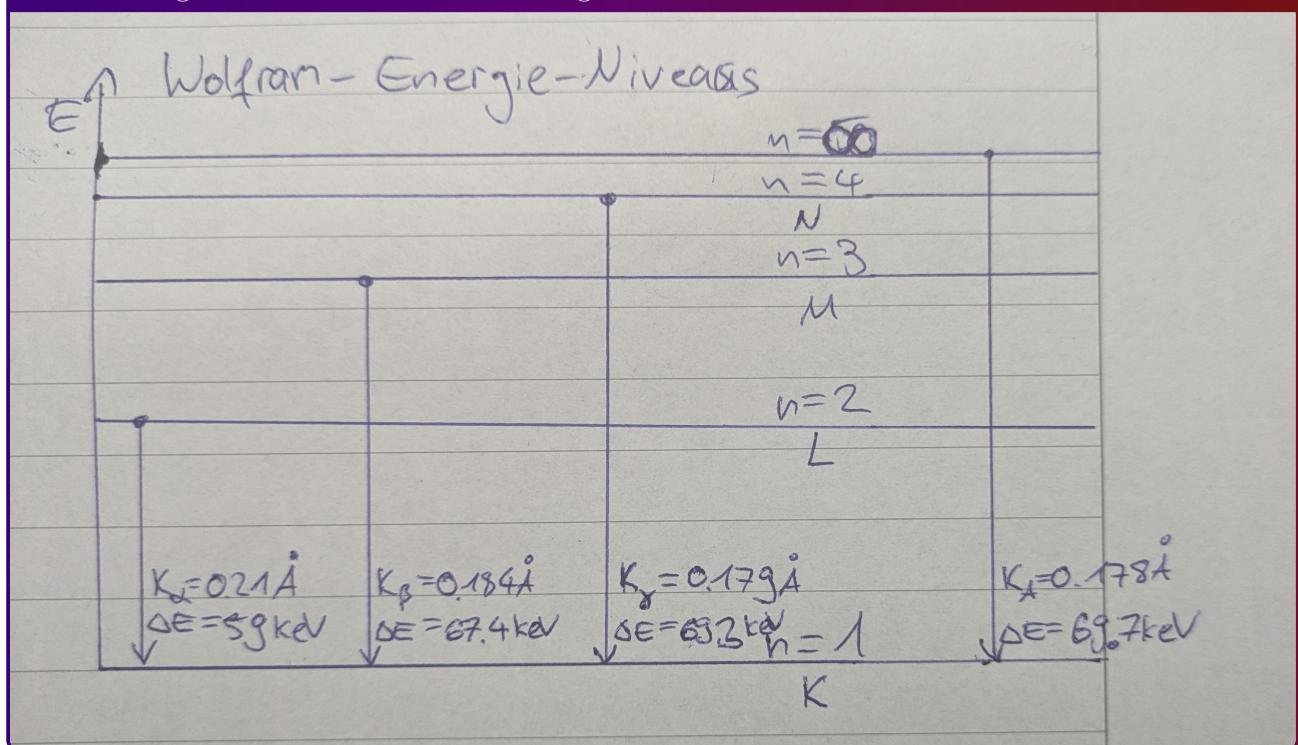 Wolfram-Energie-Niveaus
E
n=∞
n=4
N
n=3
M
n=2
L
K_α=0.21Å
ΔE=59keV
K_β=0.184Å
ΔE=67.4keV
K_γ=0.179Å
ΔE=69.3keV
K_A=0.178Å
ΔE=69.7keV
n=1
K